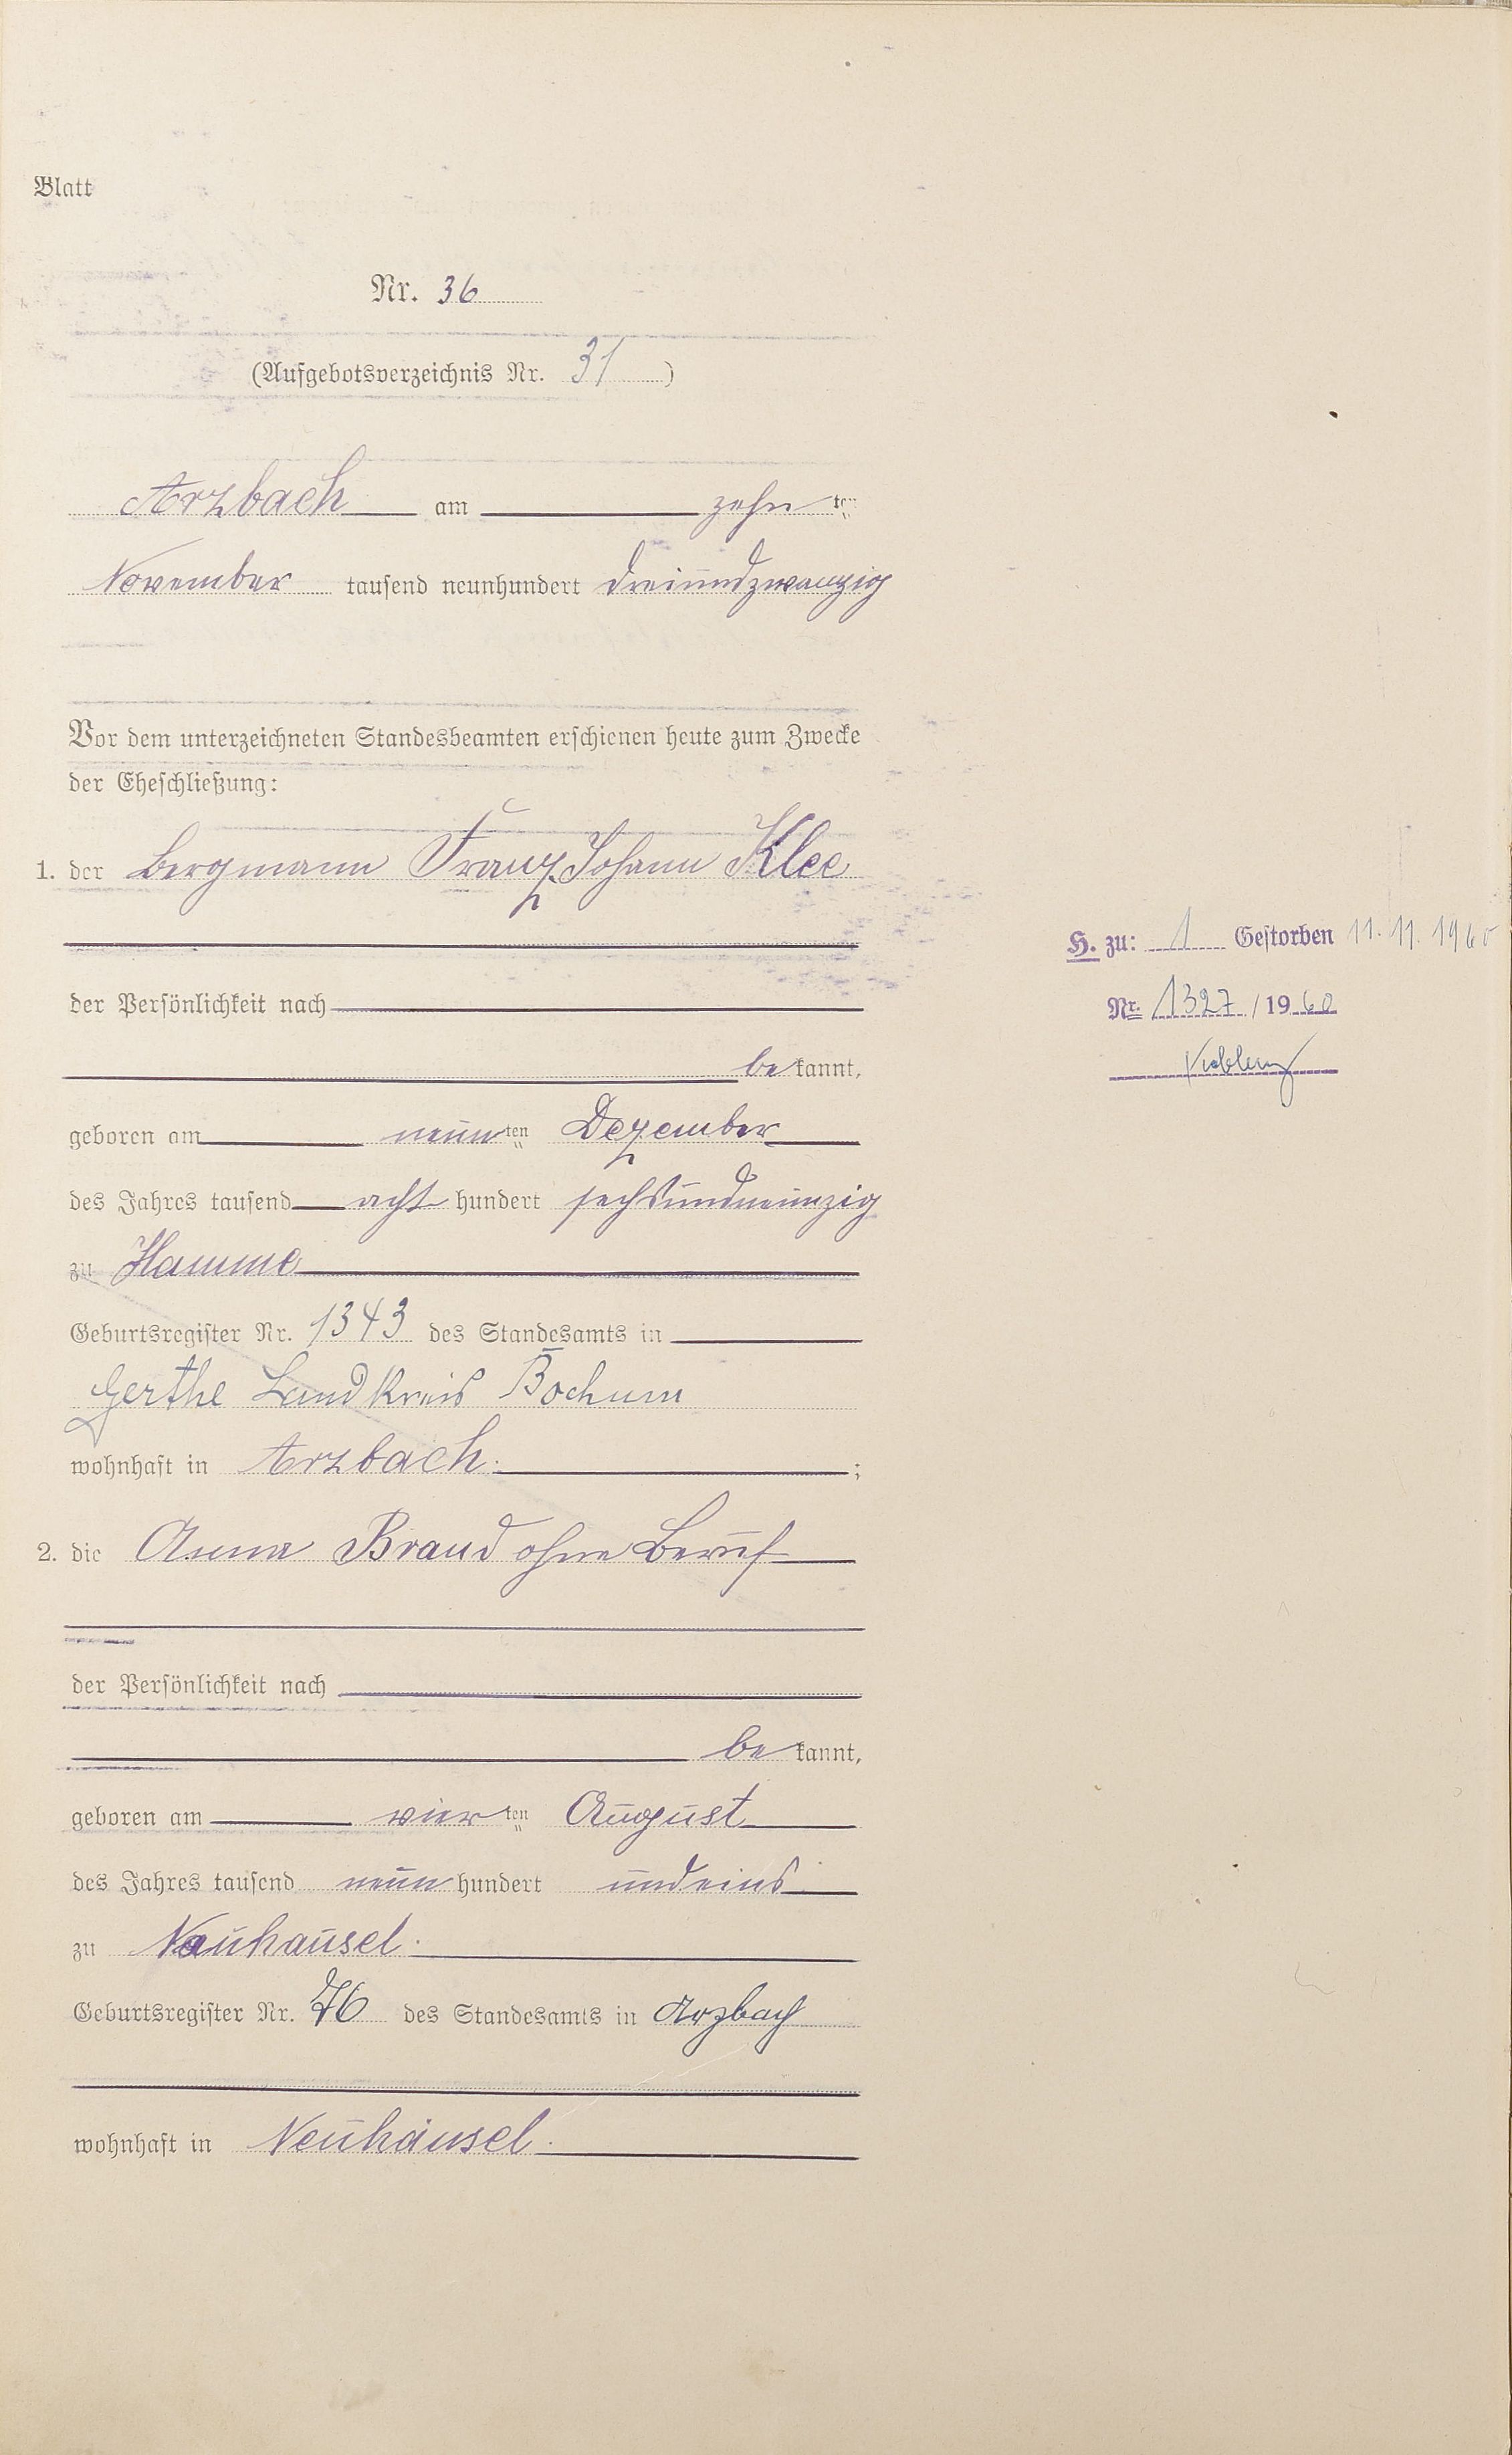 Blatt
Nr. 36
(Aufgebotsverzeichnis Nr. 31)
Arzbach am zehn ten
November tausend neunhundert dreiundzwanzig
Vor dem unterzeichneten Standesbeamten erschienen heute zum Zwecke
der Eheschließung:
1. der Bergmann Franz Johann Klee
der Persönlichkeit nach
be kannt,
geboren am neun ten Dezember
des Jahres tausend acht hundert sechsundneunzig
zu Hamme
Geburtsregister Nr. 1343 des Standesamts in
Gerthe Landkreis Bochum
wohnhaft in Arzbach. ;
2. die Anna Brand ohne Beruf
der Persönlichkeit nach
be kannt,
geboren am vier ten August
des Jahres tausend neun hundert undeins
zu Neuhausel.
Geburtsregister Nr. 76 des Standesamts in Arzbach
wohnhaft in Neuhäusel.
H. zu: 1 Gestorben 11.11.1960
Nr. 1327 / 1960
Koblenz